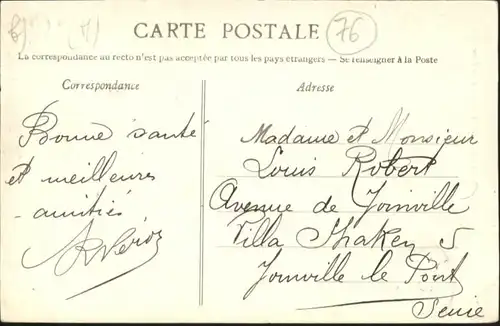 CARTE POSTALE
76
La correspondance au recto n'est pas acceptée par tous les pays étrangers — Se renseigner à la Poste
Correspondance
Adresse
Bonne santé
et meilleures
amitiés
Madame et Monsieur
Louis Robert
Avenue de Joinville
Villa 5
Joinville le Pont
Seine